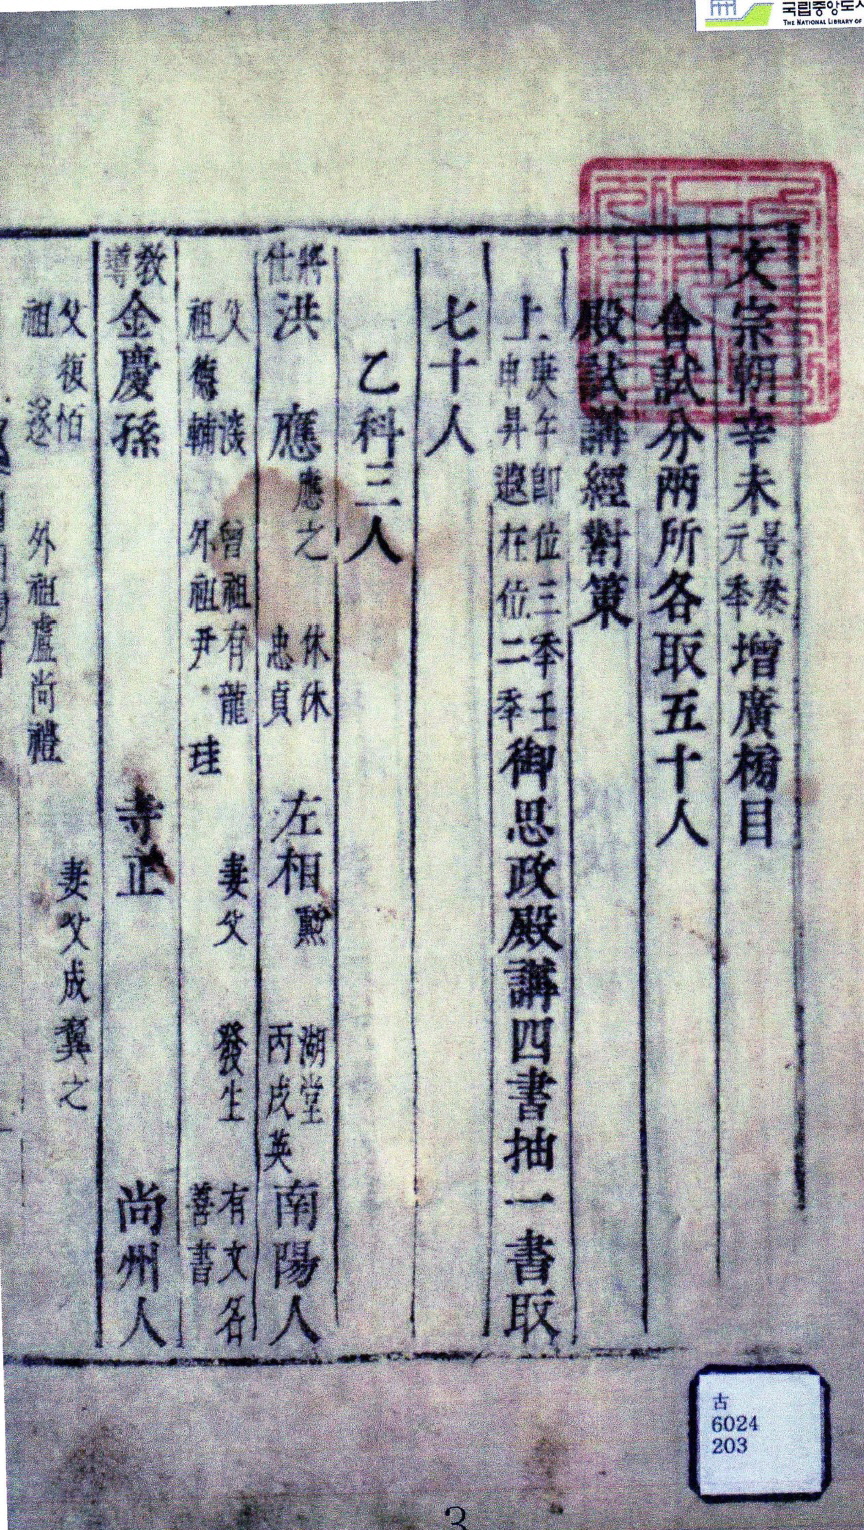 국립중앙도서
THE NATIONAL LIBRARY OF
文宗朝辛未景泰元季增廣榜目
會試分兩所各取五十人
殿試講經對策
上庚午卽位三季壬申昇遐在位二季御思政殿講四書抽一書取
七十人
乙科三人
將仕洪 應應之 休休忠貞 左相勲 湖堂丙戌英南陽人
父 曾祖有龍 妻父 發生 有文名
祖德輔 外祖尹 珪 善書
教導金慶孫 寺正 尚州人
父復恒 妻父成翼之
祖 遂 外祖盧尚禮
古
6024
203
3